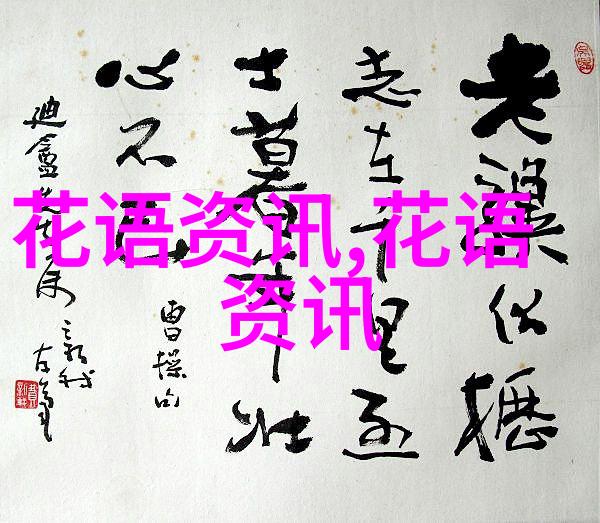 老驥伏櫪
志在千里烈
士暮年壮
心不已
曹操句
花语资讯,花语
资讯